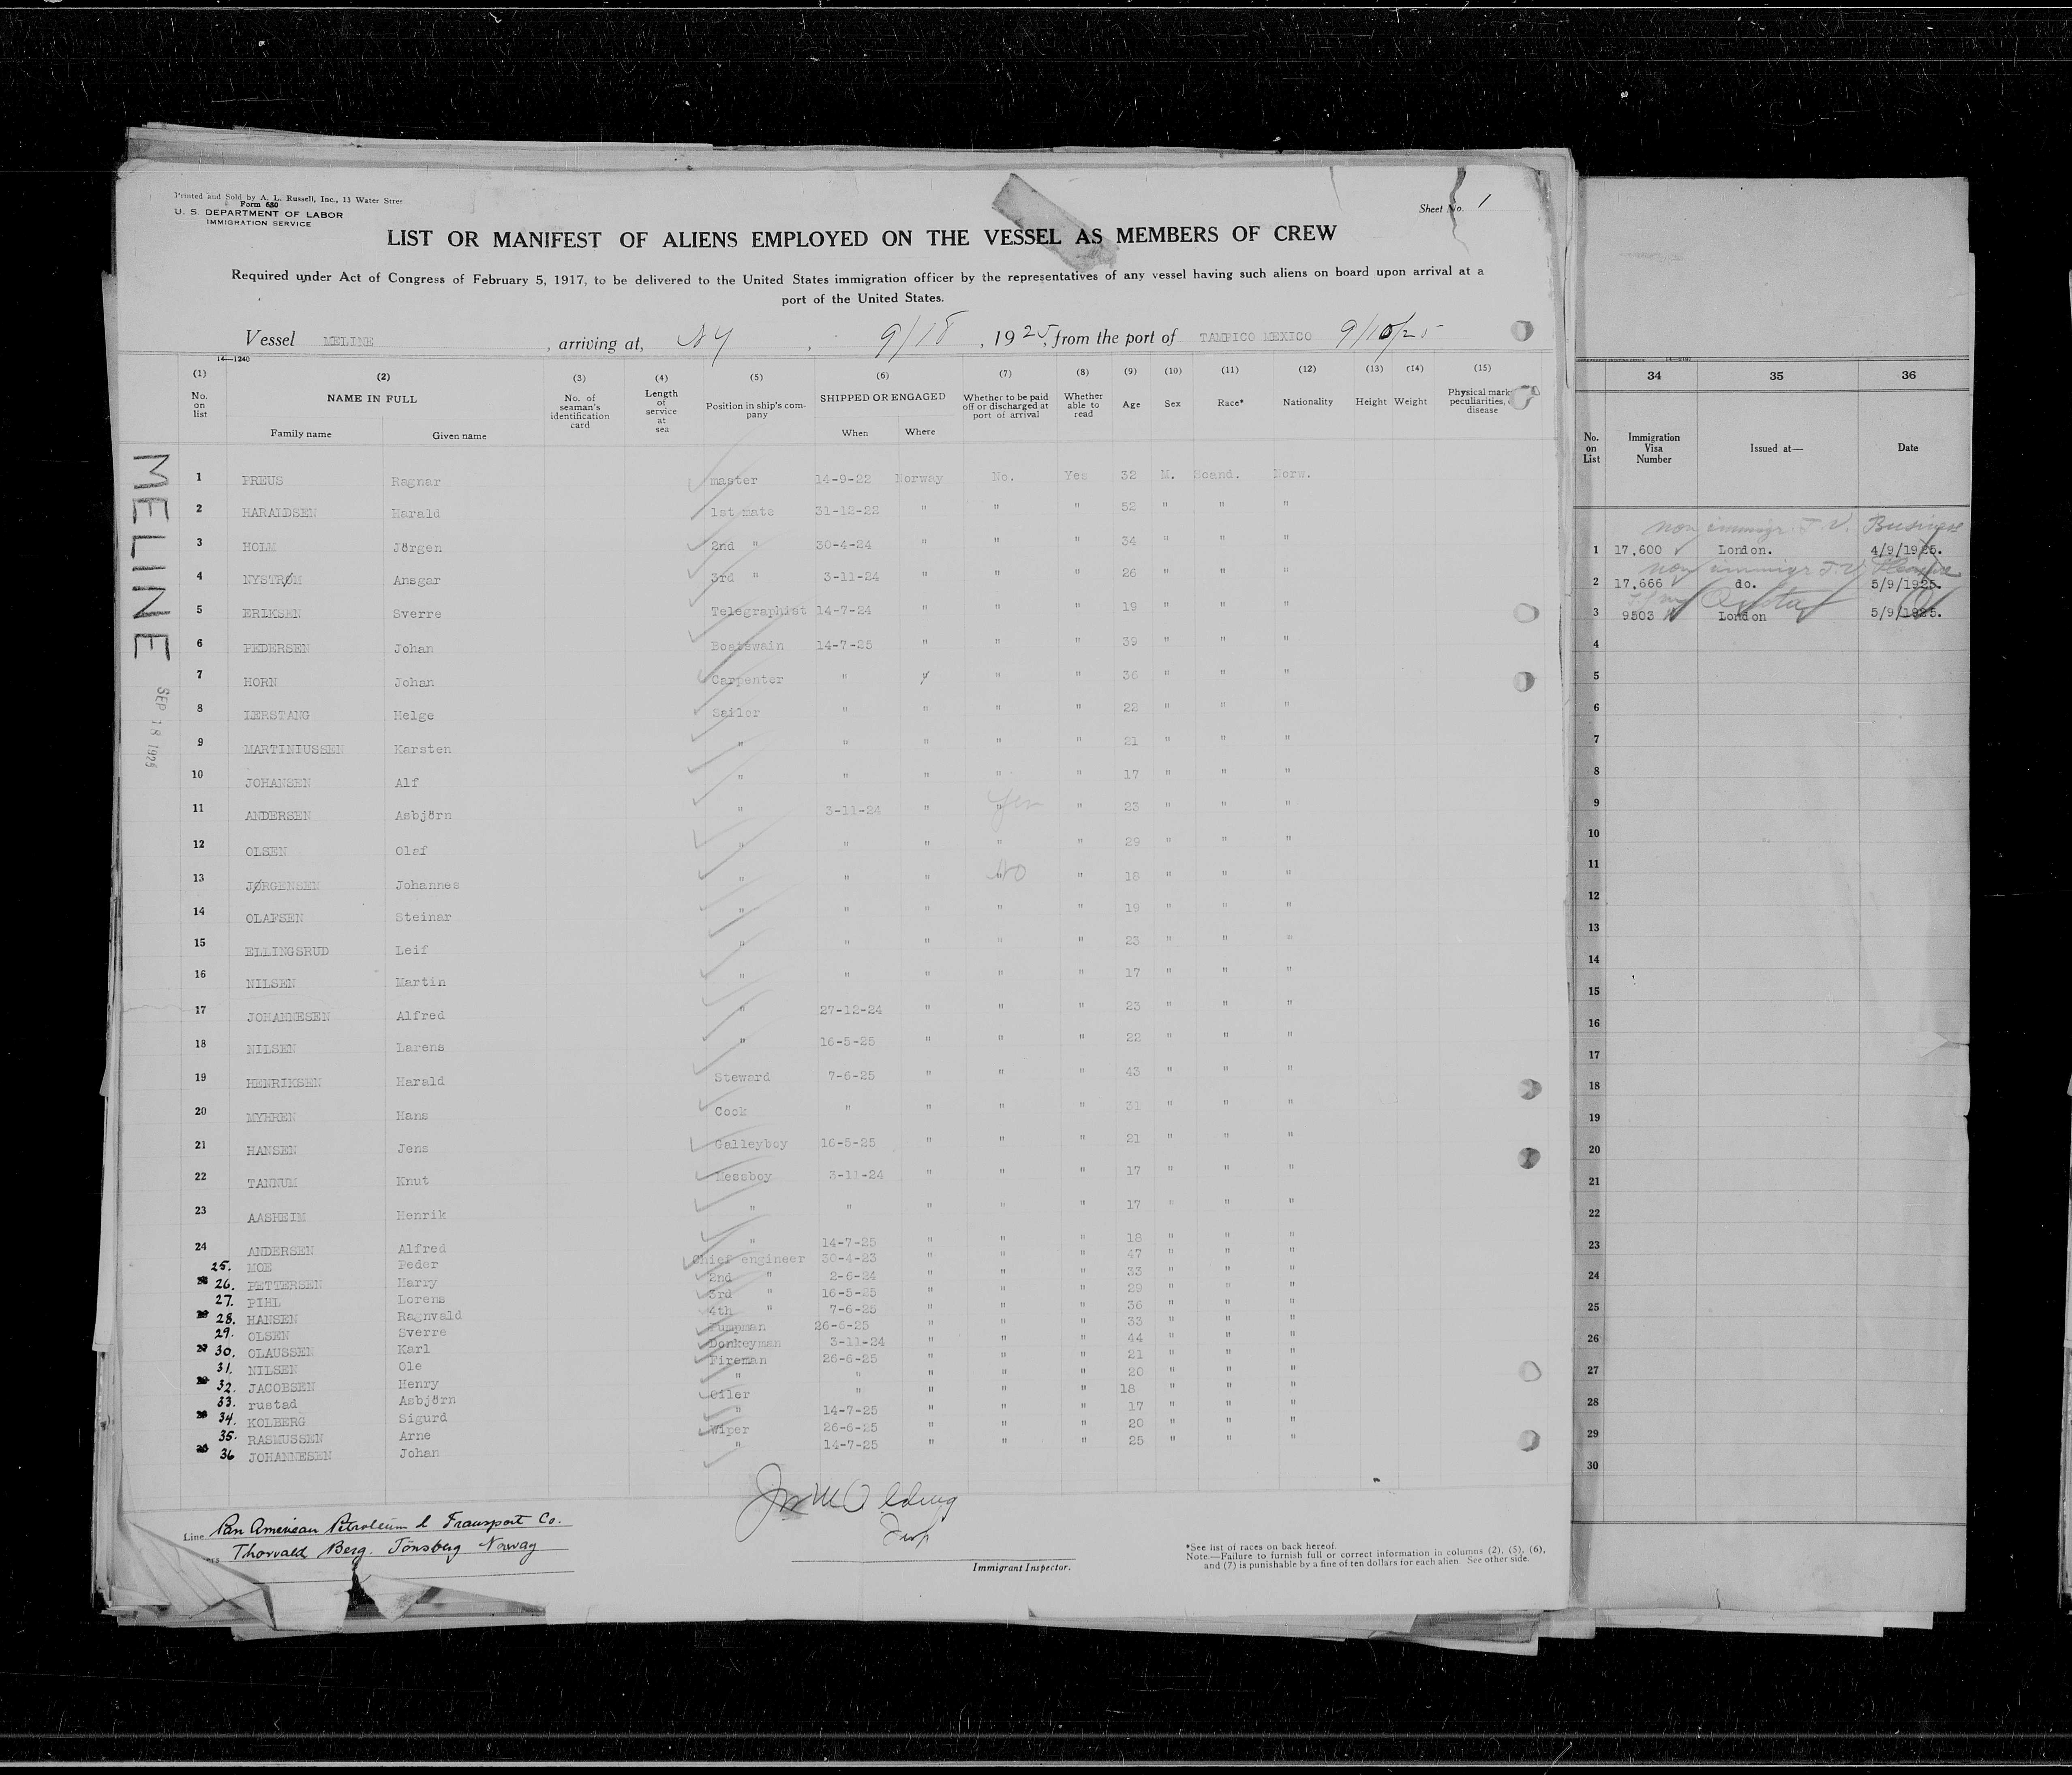 Printed and Sold by A. L. Russell, Inc., 13 Water Stree
Form 680
U. S. DEPARTMENT OF LABOR
IMMIGRATION SERVICE
Sheet No. 1
LIST OR MANIFEST OF ALIENS EMPLOYED ON THE VESSEL AS MEMBERS OF CREW
Required under Act of Congress of February 5, 1917, to be delivered to the United States immigration officer by the representatives of any vessel having such aliens on board upon arrival at a
port of the United States.
Vessel MELINE , arriving at, NY , 9/18 , 1925, from the port of TAMPICO MEXICO 9/10/25
14—1240
(1) (2) (3) (4) (5) (6) (7) (8) (9) (10) (11) (12) (13) (14) (15)
No. on list NAME IN FULL Family name Given name No. of seaman's identification card Length of service at sea Position in ship's company SHIPPED OR ENGAGED When Where Whether to be paid off or discharged at port of arrival Whether able to read Age Sex Race* Nationality Height Weight Physical mark peculiarities, disease
MELINE
SEP 18 1925
1 PREUS Ragnar master 14-9-22 Norway No. Yes 32 M. Scand. Norw.
2 HARALDSEN Harald 1st mate 31-12-22 " " " 52 " " "
3 HOLM Jörgen 2nd " 30-4-24 " " " 34 " " "
4 NYSTRØM Ansgar 3rd " 3-11-24 " " " 26 " " "
5 ERIKSEN Sverre Telegraphist 14-7-24 " " " 19 " " "
6 PEDERSEN Johan Boatswain 14-7-25 " " " 39 " " "
7 HORN Johan Carpenter " " " " 36 " " "
8 LERSTANG Helge Sailor " " " " 22 " " "
9 MARTINIUSSEN Karsten " " " " " 21 " " "
10 JOHANSEN Alf " " " " " 17 " " "
11 ANDERSEN Asbjörn " 3-11-24 " " Yes " 23 " " "
12 OLSEN Olaf " " " " " 29 " " "
13 JØRGENSEN Johannes " " " " No " 18 " " "
14 OLAFSEN Steinar " " " " " 19 " " "
15 ELLINGSRUD Leif " " " " " 23 " " "
16 NILSEN Martin " " " " " 17 " " "
17 JOHANNESEN Alfred " 27-12-24 " " " 23 " " "
18 NILSEN Larens " 16-5-25 " " " 22 " " "
19 HENRIKSEN Harald Steward 7-6-25 " " " 43 " " "
20 MYHREN Hans Cook " " " " 31 " " "
21 HANSEN Jens Galleyboy 16-5-25 " " " 21 " " "
22 TANNUM Knut Messboy 3-11-24 " " " 17 " " "
23 AASHEIM Henrik " " " " " 17 " " "
24 ANDERSEN Alfred " 14-7-25 " " " 18 " " "
25. MOE Peder Chief engineer 30-4-23 " " " 47 " " "
26. PETTERSEN Harry 2nd " 2-6-24 " " " 33 " " "
27. PIHL Lorens 3rd " 16-5-25 " " " 29 " " "
28. HANSEN Ragnvald 4th " 7-6-25 " " " 36 " " "
29. OLSEN Sverre Pumpman 26-6-25 " " " 33 " " "
30. OLAUSSEN Karl Donkeyman 3-11-24 " " " 44 " " "
31. NILSEN Ole Fireman 26-6-25 " " " 21 " " "
32. JACOBSEN Henry " " " " " 20 " " "
33. rustad Asbjörn Oiler " " " " 18 " " "
34. KOLBERG Sigurd " 14-7-25 " " " 17 " " "
35. RASMUSSEN Arne Wiper 26-6-25 " " " 20 " " "
36 JOHANNESEN Johan " 14-7-25 " " " 25 " " "
Line Pan American Petroleum & Transport Co.
Thorvald Berg. Tönsberg Norway
Insp
Immigrant Inspector.
*See list of races on back hereof.
Note.—Failure to furnish full or correct information in columns (2), (5), (6),
and (7) is punishable by a fine of ten dollars for each alien. See other side.
34 35 36
No. on List Immigration Visa Number Issued at— Date
non immigr. T.V. Business
1 17,600 London. 4/9/1925.
non immigr T.V. Pleasure
2 17,666 do. 5/9/1925.
Quota
3 9503 London 5/9/1925.
4
5
6
7
8
9
10
11
12
13
14
15
16
17
18
19
20
21
22
23
24
25
26
27
28
29
30